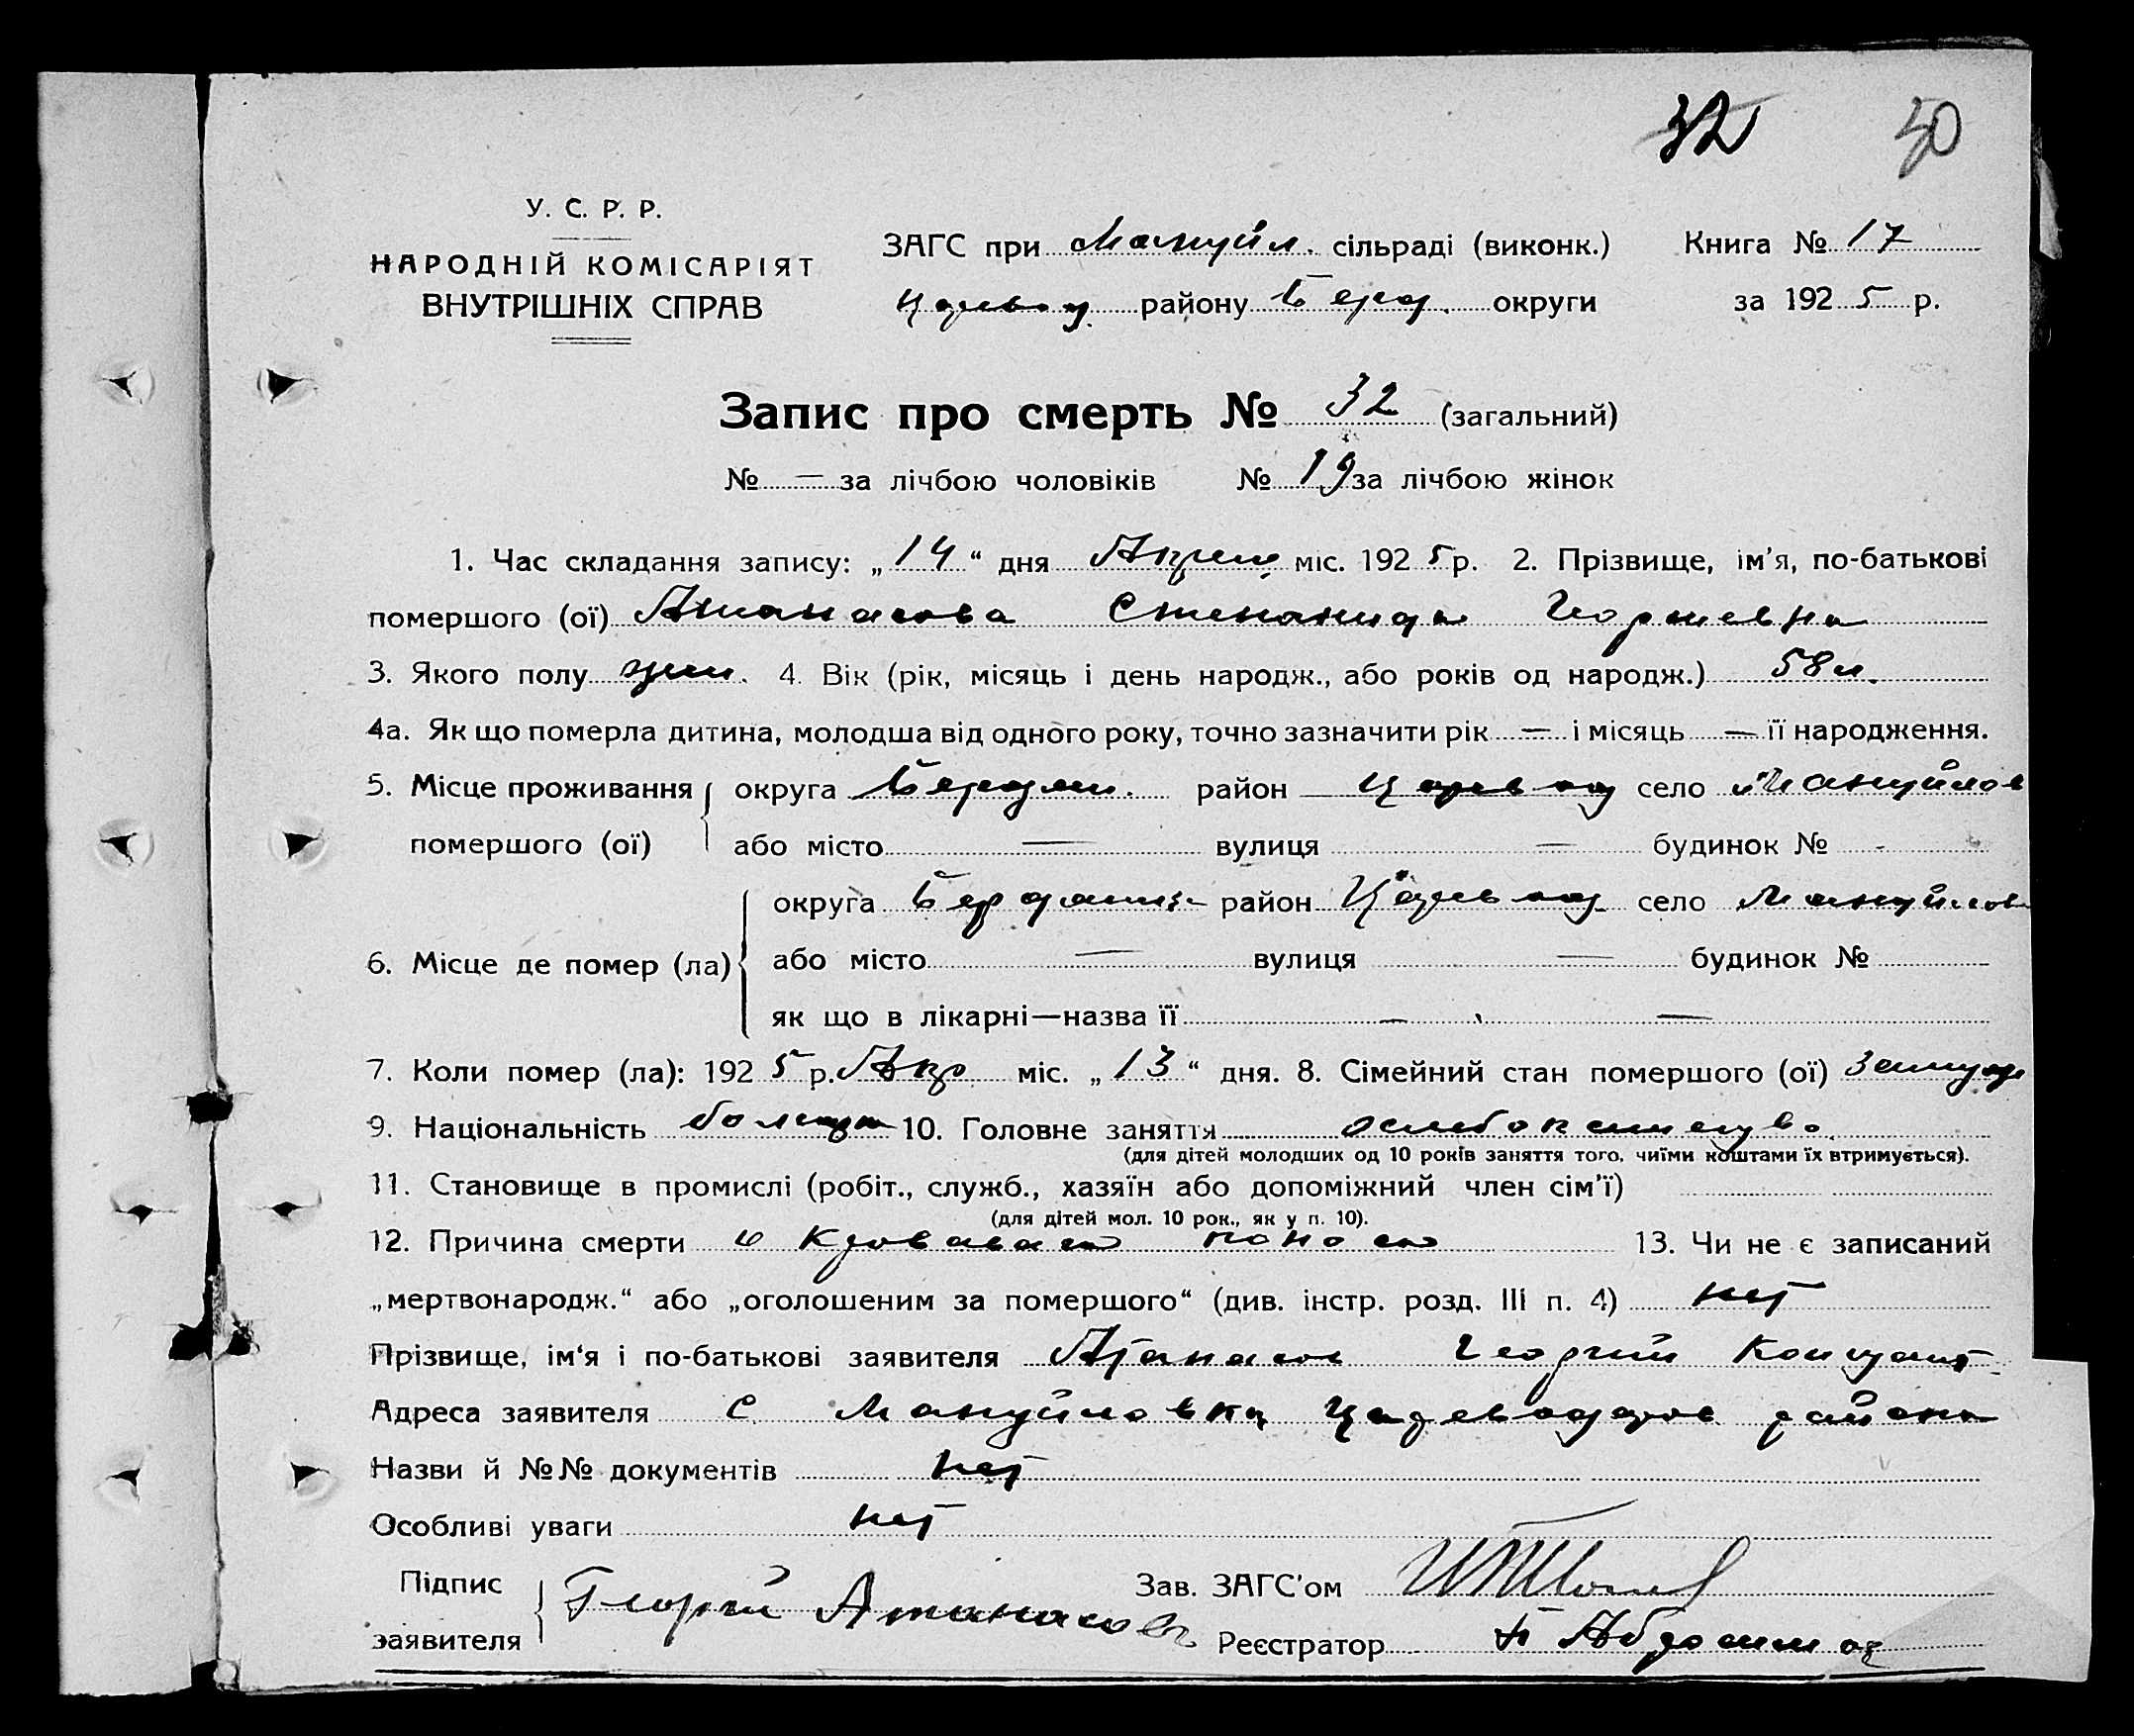 32 30
У. С. Р. Р.
НАРОДНІЙ КОМІСАРІЯТ
ВНУТРІШНІХ СПРАВ
ЗАГС при Мануйл. сільраді (виконк.) Книга № 17
району Берд. округи за 1925 р.
Запис про смерть № 32 (загальний)
№ — за лічбою чоловіків № 19 за лічбою жінок
1. Час складання запису: „14“ дня Апреля міс. 1925 р. 2. Прізвище, ім’я, по-батькові
помершого (ої) Атанасова Степанида Георгиевна
3. Якого полу жен. 4. Вік (рік, місяць і день народж., або років од народж.) 58 л.
4а. Як що померла дитина, молодша від одного року, точно зазначити рік — і місяць — її народження.
5. Місце проживання округа Бердян. район Царевод село Мануйлов
помершого (ої) або місто — вулиця — будинок № -
округа район Царевод село Мануйлов
6. Місце де помер (ла) або місто — вулиця — будинок №
як що в лікарні—назва її — —
7. Коли помер (ла): 1925 р. Апр міс. „13“ дня. 8. Сімейний стан помершого (ої) замуж
9. Національність болгарка 10. Головне заняття
(для дітей молодших од 10 років заняття того, чиїми коштами їх втримується).
11. Становище в промислі (робіт., служб., хазяїн або допоміжний член сім’ї)
(для дітей мол. 10 рок., як у п. 10).
12. Причина смерти понос 13. Чи не є записаний
„мертвонародж.“ або „оголошеним за помершого“ (див. інстр. розд. III п. 4) нет
Прізвище, ім‘я і по-батькові заявителя Атанасов Георгий Констант
Адреса заявителя с Мануйловка района
Назви й №№ документів нет
Особливі уваги нет
Підпис Георгій Атанасовъ Зав. ЗАГС’ом
заявителя Реєстратор